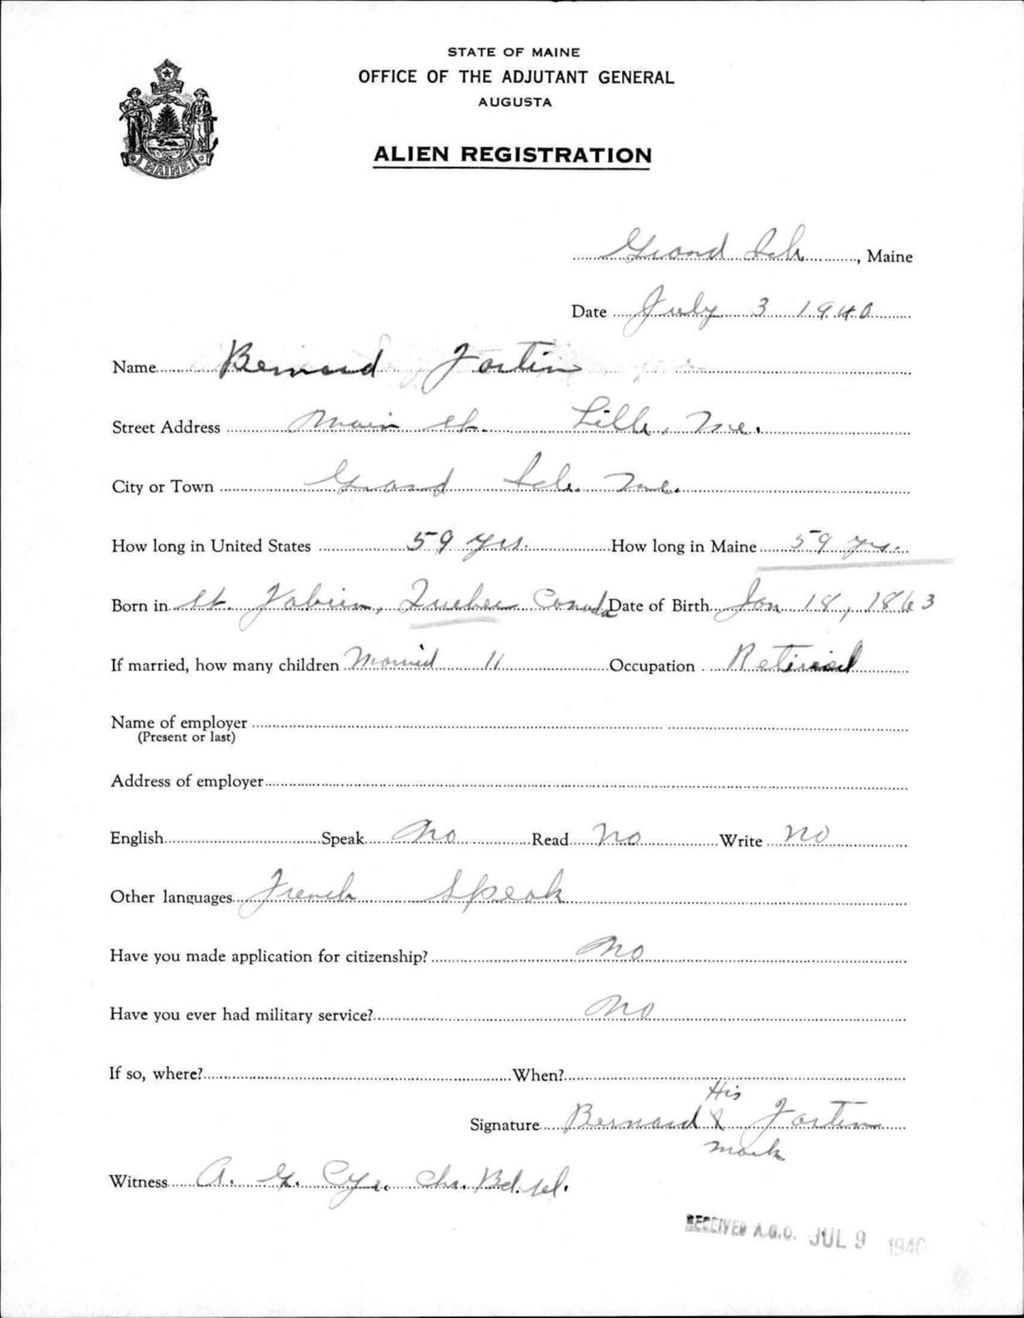 STATE OF MAINE
OFFICE OF THE ADJUTANT GENERAL
AUGUSTA
ALIEN REGISTRATION
MAINE
Grand Isle, Maine
Date July 3 1940
Name Bernard Fortin
Street Address Main St. Lille, Me.
City or Town Grand Isle Me.
How long in United States 59 yrs. How long in Maine 59 yrs.
Born in St. Fabien, Quebec Canada Date of Birth Jan 18, 1863
If married, how many children Married 11 Occupation Retired
Name of employer
(Present or last)
Address of employer
English Speak No Read No Write No
Other languages French Speak
Have you made application for citizenship? No
Have you ever had military service? No
If so, where? When?
His
Signature Bernard X Fortin
mark
Witness A. G. Cyr. Ch. Bd. Sel.
RECEIVED A.G.O. JUL 9 1940